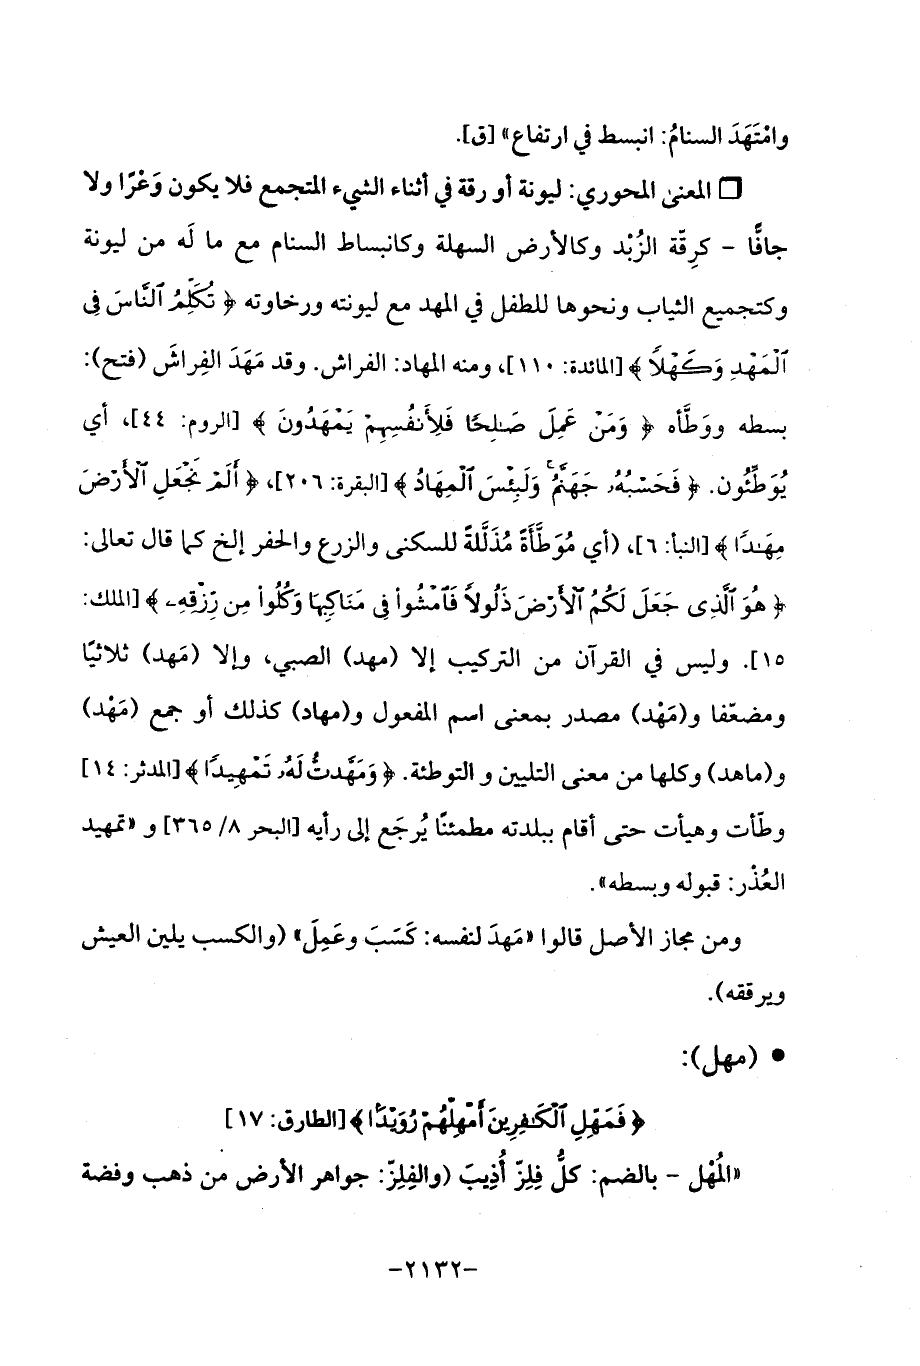 وامْتَهَدَ السنامُ: انبسط في ارتفاع» [ق].
□ المعنى المحوري: ليونة أو رقة في أثناء الشيء المتجمع فلا يكون وَعْرًا ولا
جافًّا – كرِقّة الزُبْد وكالأرض السهلة وكانبساط السنام مع ما لَه من ليونة
وكتجميع الثياب ونحوها للطفل في المهد مع ليونته ورخاوته ﴿ تُكَلِّمُ ٱلنَّاسَ فِى
ٱلْمَهْدِ وَكَهْلاً ﴾ [المائدة: ١١٠]، ومنه المهاد: الفراش. وقد مَهَدَ الفِراشَ (فتح):
بسطه ووَطَّأه ﴿ وَمَنْ عَمِلَ صَـٰلِحًا فَلِأَنفُسِهِمْ يَمْهَدُونَ ﴾ [الروم: ٤٤]، أي
يُوَطِّئُون. ﴿ فَحَسْبُهُۥ جَهَنَّمُ ۚ وَلَبِئْسَ ٱلْمِهَادُ ﴾ [البقرة: ٢٠٦]، ﴿ أَلَمْ نَجْعَلِ ٱلْأَرْضَ
مِهَـٰدًا ﴾ [النبأ: ٦]، (أي مُوَطَّأَةً مُذَلَّلةً للسكنى والزرع والحفر إلخ كما قال تعالى:
﴿ هُوَ ٱلَّذِى جَعَلَ لَكُمُ ٱلْأَرْضَ ذَلُولاً فَٱمْشُوا۟ فِى مَنَاكِبِهَا وَكُلُوا۟ مِن رِّزْقِهِۦ ﴾ [الملك:
١٥]. وليس في القرآن من التركيب إلا (مهد) الصبي، وإلا (مَهد) ثلاثيًا
ومضعّفا و(مَهْد) مصدر بمعنى اسم المفعول و(مهاد) كذلك أو جمع (مَهْد)
و(ماهد) وكلها من معنى التليين و التوطئة. ﴿ وَمَهَّدتُّ لَهُۥ تَمْهِيدًا ﴾ [المدثر: ١٤]
وطّأت وهيأت حتى أقام ببلدته مطمئنًا يُرجَع إلى رأيه [البحر ٨/ ٣٦٥] و «تمهيد
العُذْر: قبوله وبسطه».
ومن مجاز الأصل قالوا «مَهدَ لنفسه: كَسَبَ وعَمِلَ» (والكسب يلين العيش
ويرققه).
• (مهل):
﴿ فَمَهِّلِ ٱلْكَـٰفِرِينَ أَمْهِلْهُمْ رُوَيْدًۢا ﴾ [الطارق: ١٧]
«المُهْل – بالضم: كلُّ فِلِزّ أُذِيبَ (والفِلِزّ: جواهر الأرض من ذهب وفضة
-٢١٣٢-